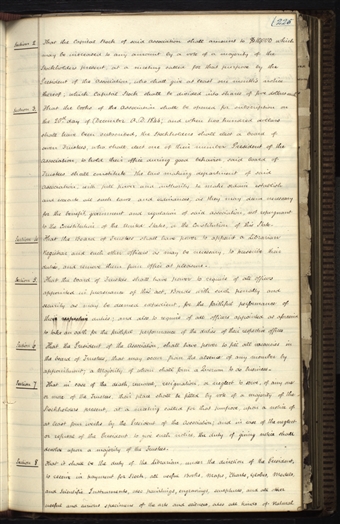 225
Section 2. That the Capital Stock of said association shall amount to which
may be increased to any amount by a vote of a majority of the
Stockholders present, at a meeting called for that purpose by the
President of the association, who shall give at least one months notice
thereof, which Capital Stock shall be divided into shares of five dollars each
Section 3. That the books of the Association shall be opened for subscription on
the day of December A.D. and when five hundred dollars
shall have been subscribed, the Stockholders shall elect a board of
seven Trustees, who shall elect one of their number President of the
Association, to hold their office during good behavior said board of
Trustees shall constitute the law making department of said
association, with full power and authority to make ordain establish
and execute all such laws and ordinances, as they may deem necessary
for the benefit, government and regulation of said association, not repugnant
to the Constitution of the United States, or the Constitution of this State.
Section 4. That the Board of Trustees shall have power to appoint a Librarian
Registrar and such other officers as may be necessary, to prescribe their
duties, and remove them from office at pleasure.
Section 5. That the board of Trustees shall have power to require of all officers
appointed in pursuance of this act, Bonds with such penalty and
security as may be deemed expedient, for the faithful performance of
their respective duties, and also to require of all officers appointed as aforesaid
to take an oath for the faithful performance of the duties of their respective offices
Section 6. That the President of the Association, shall have power to fill all vacancies in
the board of Trustees, that may occur from the absence of any member by
appointment, a Majority of whom shall form a Quorum to do business.
Section 7. That in case of the death, removal, resignation, or neglect to serve, of any one
or more of the Trustees, their place shall be filled by vote of a majority of the
Stockholders present, at a meeting called for that purpose, upon a notice of
at least four weeks by the President of the Association, and in case of the neglect
or refusal of the President to give such notice, the duty of giving notice shall
devolve upon a majority of the Trustees.
Section 8. That it shall be the duty of the Librarian, under the direction of the President,
to receive in payment for Stock, all useful Books, Maps, Charts, Globes, Models,
and Scientific Instruments, also paintings, engravings, sculpture, and all other
useful and curious specimens of the arts and sciences, also all kinds of Natural